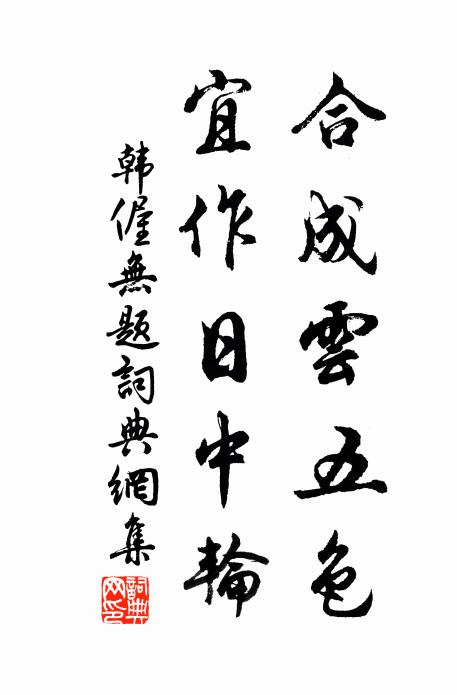 合成雲五色
宜作日中輪
韓偓無題詞典網集
詞典網印